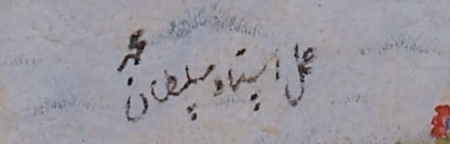 عمل استاد سلطان محمد